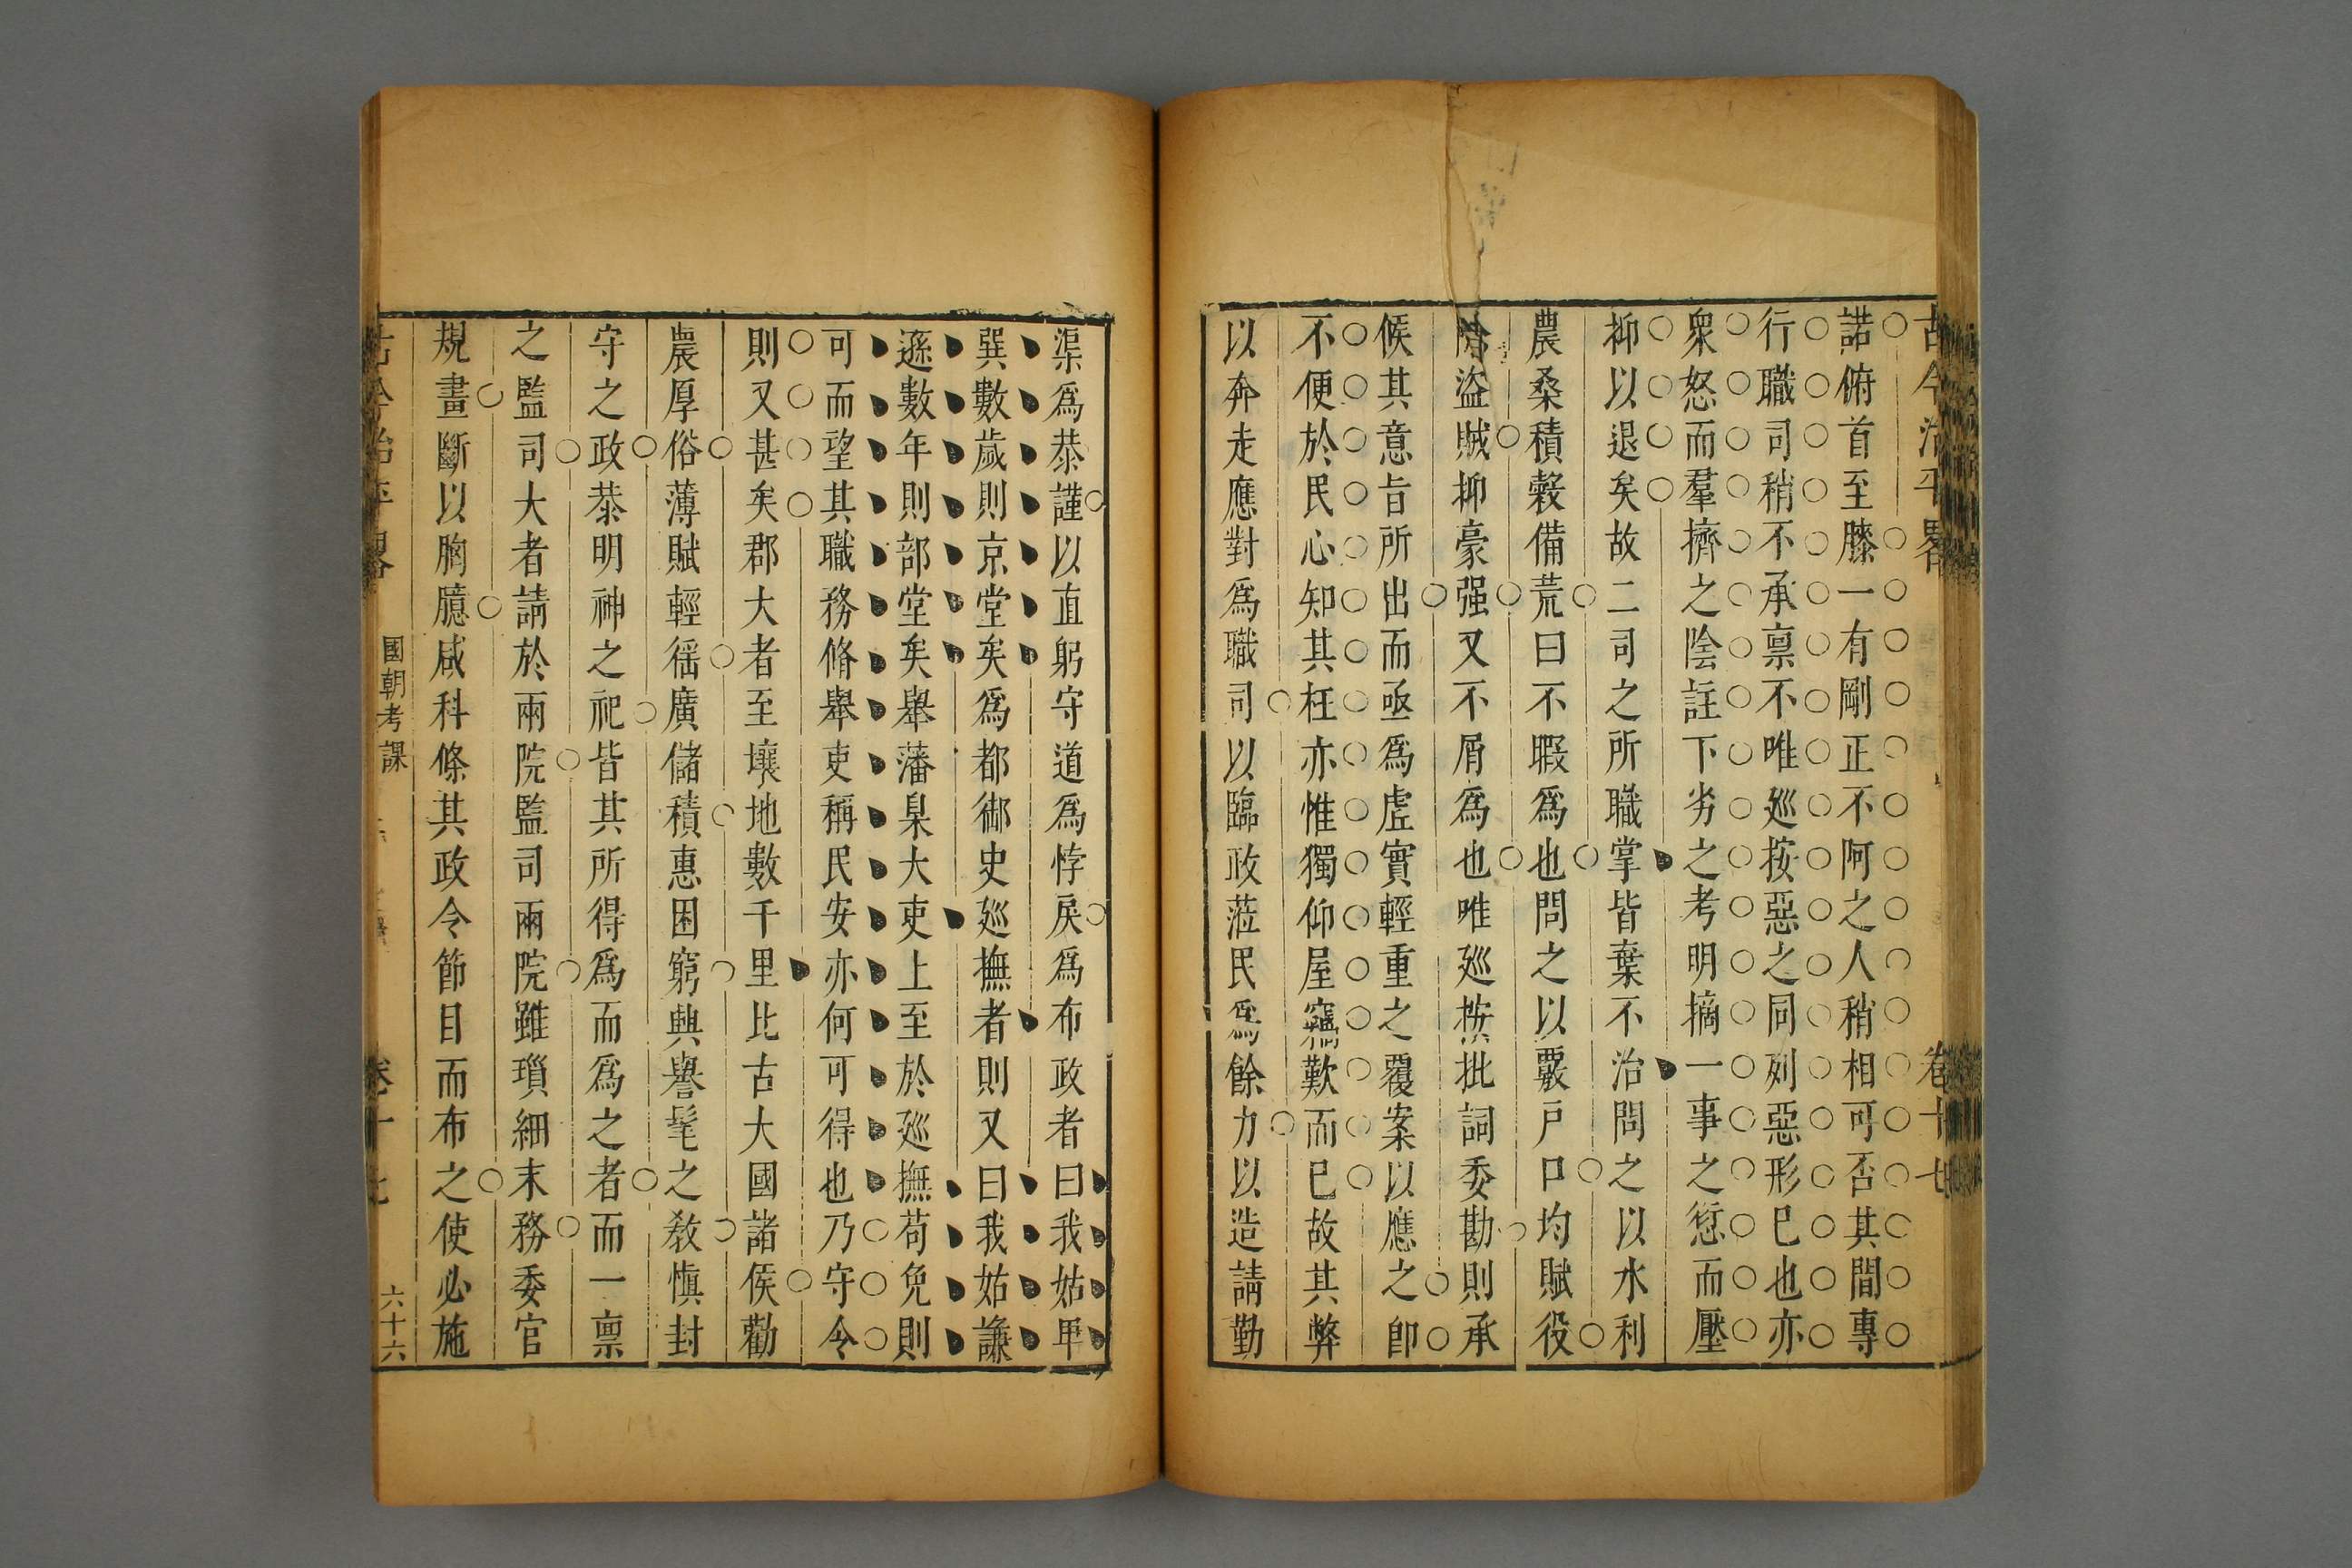 古今治平畧 卷十七
諾俯首至膝一有剛正不阿之人稍相可否其間專
行職司稍不承禀不唯廵按惡之同列惡形巳也亦
衆怒而羣擠之陰註下劣之考明摘一事之愆而壓
抑以退矣故二司之所職掌皆棄不治問之以水利
農桑積榖備荒曰不暇爲也問之以覈戸口均賦役
盜賊抑豪强又不屑爲也唯廵按批詞委勘則承
候其意旨所出而亟爲虛實輕重之覆案以應之卽
不便於民心知其枉亦惟獨仰屋竊歎而巳故其弊
以奔走應對爲職司以臨政蒞民爲餘力以造請勤
渠爲恭謹以直躬守道爲悖戾爲布政者曰我姑卑
巽數歲則京堂矣爲都御史廵撫者則又曰我姑謙
遜數年則部堂矣舉藩臬大吏上至於廵撫苟免則
可而望其職務脩舉吏稱民安亦何可得也乃守令
則又甚矣郡大者至壤地數千里比古大國諸侯勸
農厚俗薄賦輕徭廣儲積惠困窮興譽髦之敎愼封
守之政恭明神之祀皆其所得爲而爲之者而一禀
之監司大者請於兩院監司兩院雖瑣細末務委官
規畫斷以胸臆咸科條其政令節目而布之使必施
古今治平畧 國朝考課 卷十七 六十六